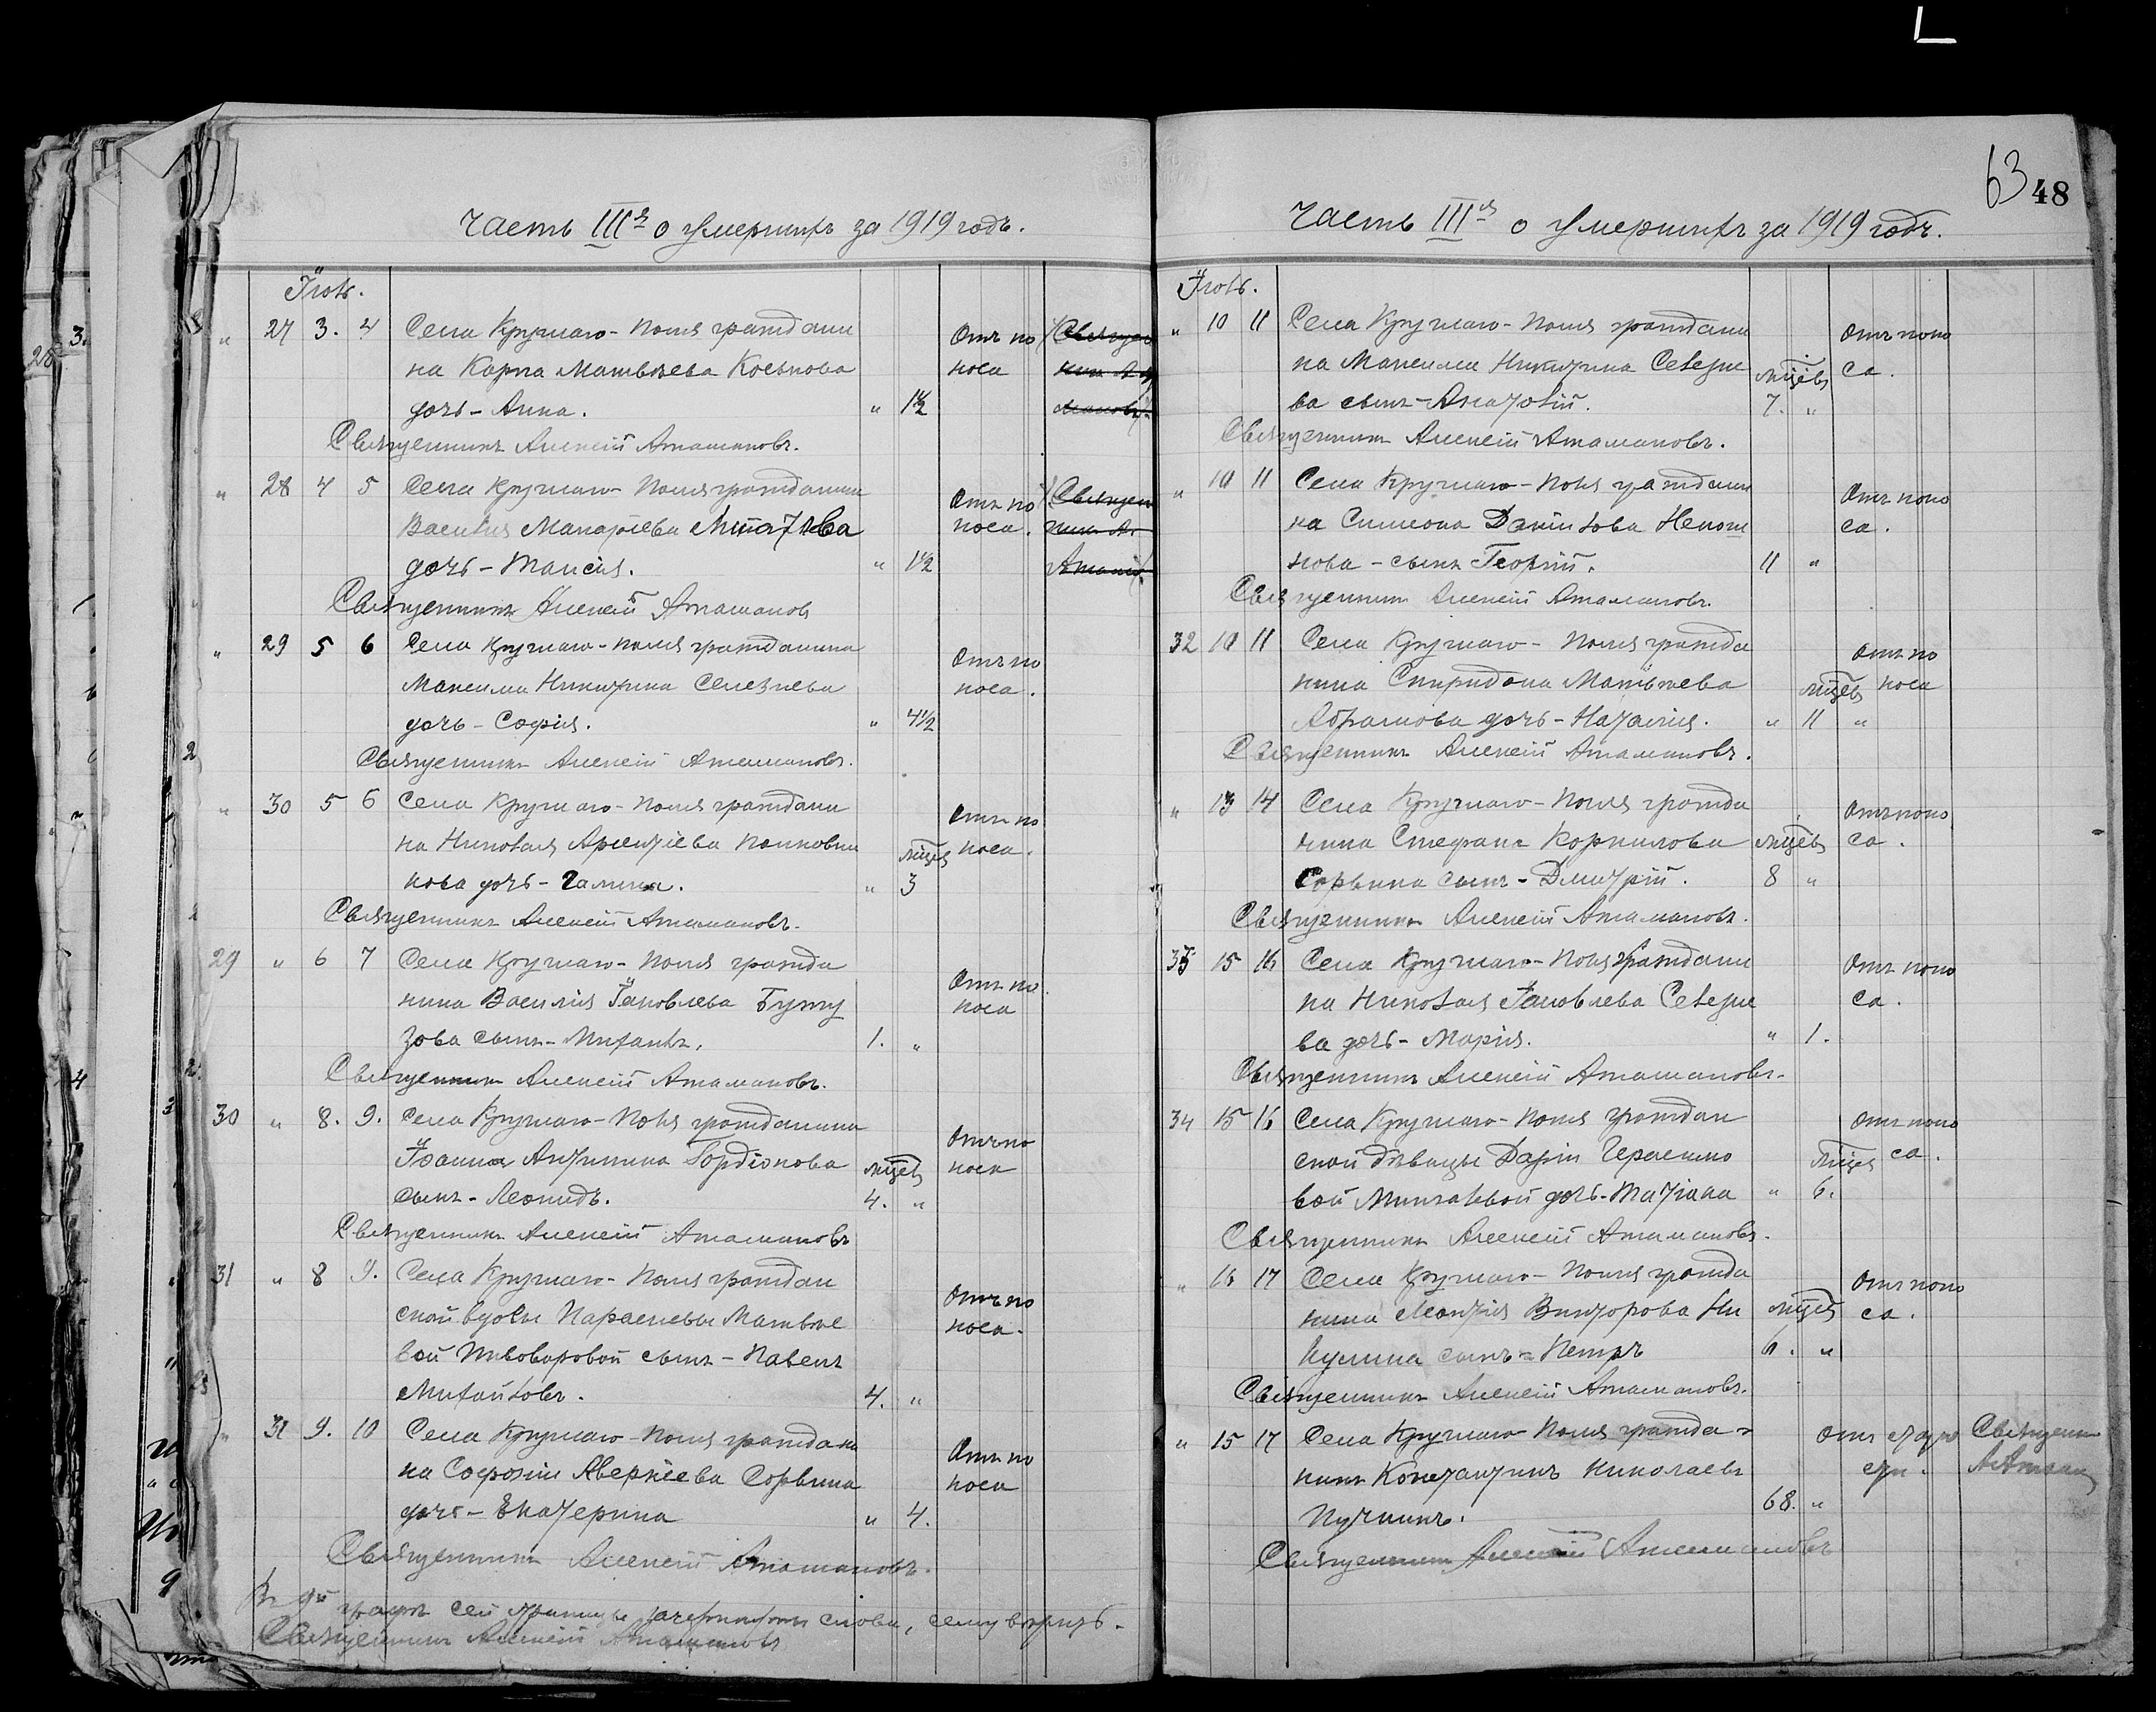 63 48
Часть IIIя о умершихъ за 1919 годъ.
Іюль.
" 27 3. 4 Села Круглаго-Поля граждани
на Карпа Матвѣева Коськова
дочь - Анна. " 1½
Отъ по
носа
Священникъ Алексій Атамановъ.
" 28 4 5 Села Круглаго-Поля гражданина
Василія Макаріева
дочь - Таисія. " 1½
Отъ по
носа.
Священникъ Алексій Атамановъ
" 29 5 6 Села Круглаго-Поля гражданина
Максима Никитина Селезнева
дочь - Софія. " 4½
Отъ по
носа.
Священникъ Алексій Атамановъ.
" 30 5 6 Села Круглаго-Поля граждани
на Николая Арсентіева Полковни
кова дочь - Галина. " мѣсец 3
Отъ по
носа.
Священникъ Алексій Атамановъ.
29 " 6 7 Села Круглаго-Поля гражда
нина Василія Іаковлева Буту
зова сынъ - Михаилъ. 1. "
Отъ по
носа
Священникъ Алексій Атамановъ.
30 " 8. 9. Села Круглаго-Поля гражданина
Іоанна Антипина Гордіонова
сынъ - Леонидъ. мѣсец 4. "
Отъ по
носа
Священникъ Алексій Атамановъ
31 " 8 9. Села Круглаго-Поля граждан
ской вдовы Параскевы Матвѣе
вой Пивоваровой сынъ - Павелъ
Михайловъ. 4. "
Отъ по
носа.
" 31 9. 10 Села Круглаго-Поля граждани
на Софонія Аверкіева Сорвина
дочь - Екатерина " 4.
Отъ по
носа
Священникъ Алексій Атамановъ.
Въ 9й графѣ сей страницы зачеркнуты слова, сему вѣрить.
Священникъ Алексій Атамановъ
Часть IIIя о умершихъ за 1919 годъ.
Іюль.
" 10 11 Села Круглаго-Поля граждани
на Максима Никитина Селезне
ва сынъ - Анатолій. мѣсецъ 7. "
Отъ поно
са.
Священникъ Алексій Атамановъ.
" 10 11 Села Круглаго-Поля граждани
на Симеона Данилова
сынъ Георгій. 11 "
Отъ поно
са.
Священникъ Алексій Атамановъ.
32 10 11 Села Круглаго-Поля гражда
нина Спиридона Матвѣева
Абрамова дочь - Наталія. " мѣсец 11 "
Отъ по
носа
Священникъ Алексій Атамановъ.
" 13 14 Села Круглаго-Поля гражда
нина Стефана Корнилова
Сорвина сынъ - Димитрій. мѣсецъ 8 "
Отъ поно
са.
Священникъ Алексій Атамановъ.
33 15 16 Села Круглаго-Поля граждани
на Николая Іаковлева Селезне
ва дочь - Марія. " 1.
Отъ поно
са.
Священникъ Алексій Атамановъ.
34 15 16 Села Круглаго-Поля граждан
ской дѣвицы Даріи Герасимо
вой дочь - Татіана " мѣсец 6.
Отъ поно
са.
Священникъ Алексій Атамановъ.
" 16 17 Села Круглаго-Поля гражда
нина Леонтія Викторова Ни
кулина сынъ - Петръ мѣсец 6. "
Отъ поно
са.
Священникъ Алексій Атамановъ.
" 15 17 Села Круглаго-Поля гражда-
нинъ Константинъ Николаевъ
Пучкинъ. 68. "
Отъ старо
сти.
Священникъ Алексій Атамановъ